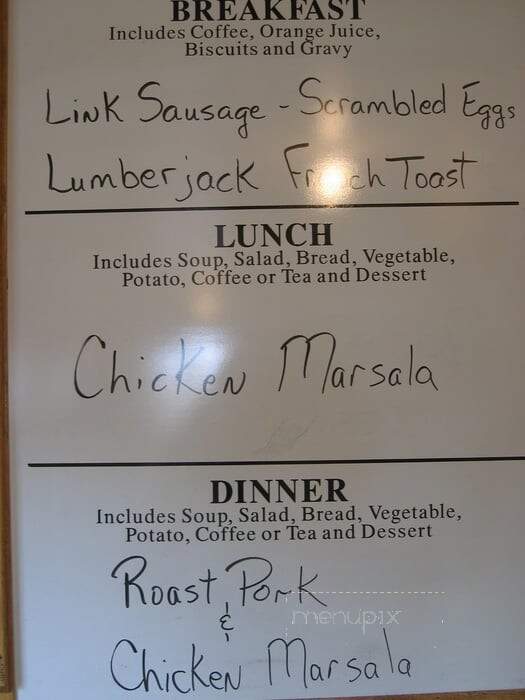 BREAKFAST
Includes Coffee, Orange Juice,
Biscuits and Gravy
Link Sausage - Scrambled Eggs
Lumberjack French Toast
LUNCH
Includes Soup, Salad, Bread, Vegetable,
Potato, Coffee or Tea and Dessert
Chicken Marsala
DINNER
Includes Soup, Salad, Bread, Vegetable,
Potato, Coffee or Tea and Dessert
Roast Pork
&
menupix
Chicken Marsala